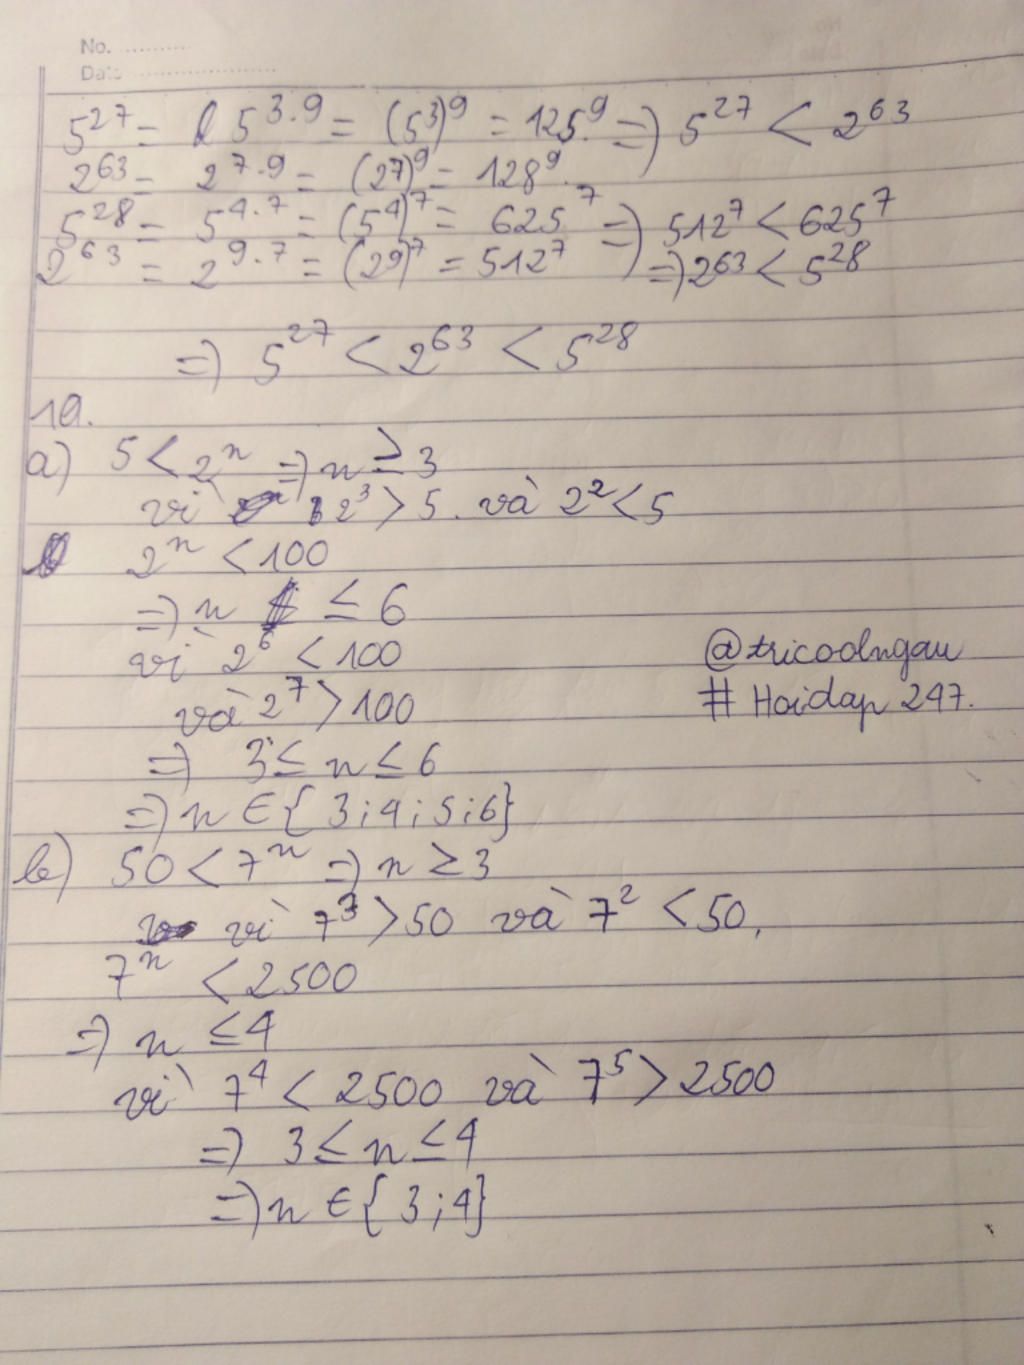 No. ............
Date ........................
5^27 = 5^3.9 = (5^3)^9 = 125^9 => 5^27 < 2^63
2^63 = 2^7.9 = (27)^9 = 128^9.
5^28 = 5^4.7 = (5^4)^7 = 625^7 => 512^7 < 625^7
2^63 = 2^9.7 = (29)^7 = 512^7 => 2^63 < 5^28
=> 5^27 < 2^63 < 5^28
10.
a) 5 < 2^n => n ≥ 3
vì 2^3 > 5. và 2^2 < 5
2^n < 100
=> n ≤ 6
vì 2^6 < 100
và 2^7 > 100
=> 3 ≤ n ≤ 6
=> n ∈ { 3 ; 4 ; 5 ; 6 }
b) 50 < 7^n => n ≥ 3
vì 7^3 > 50 và 7^2 < 50.
7^n < 2500
=> n ≤ 4
vì 7^4 < 2500 và 7^5 > 2500
=> 3 ≤ n ≤ 4
=> n ∈ { 3 ; 4 }
@tricoolngau
# Hoidap 247.